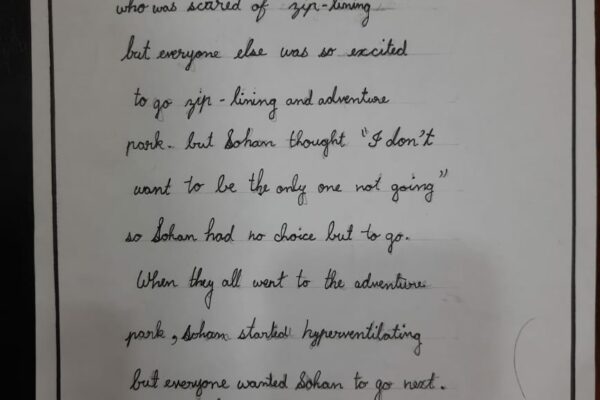 who was scared of zip-lining
but everyone else was so excited
to go zip-lining and adventure
park. but Sohan thought "I don't
want to be the only one not going"
so Sohan had no choice but to go.
When they all went to the adventure
park, Sohan started hyperventilating
but everyone wanted Sohan to go next.